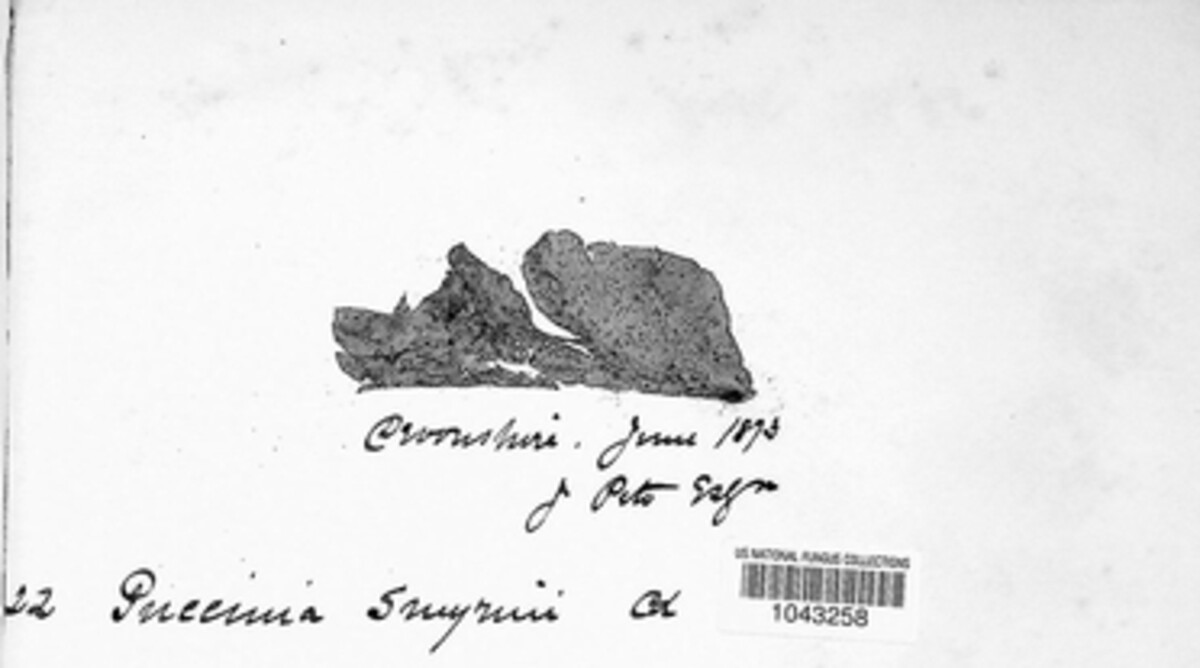 Devonshire. June 1873
J Peto Esqre
22 Puccinia Smyrnii Cd
US NATIONAL FUNGUS COLLECTIONS
1043258